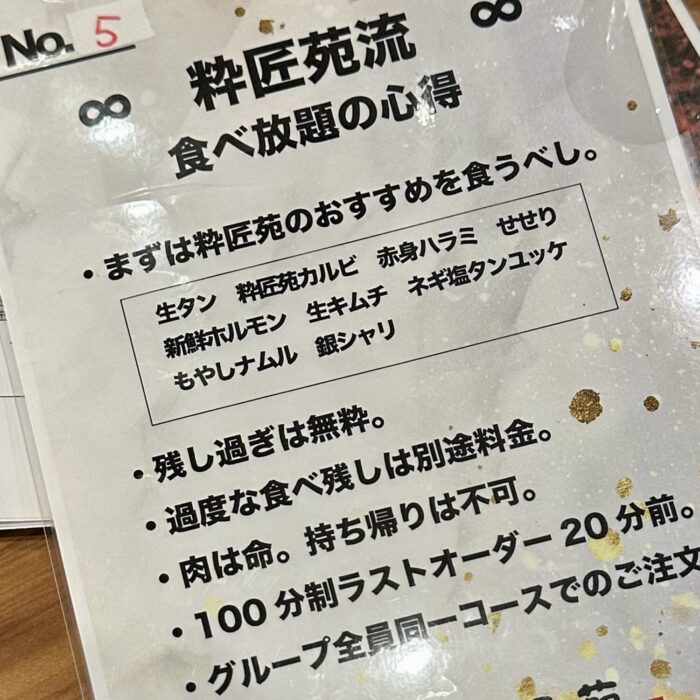 No. 5
∞ 粋匠苑流 ∞
食べ放題の心得
・まずは粋匠苑のおすすめを食うべし。
生タン 粋匠苑カルビ 赤身ハラミ せせり
新鮮ホルモン 生キムチ ネギ塩タンユッケ
もやしナムル 銀シャリ
・残し過ぎは無粋。
・過度な食べ残しは別途料金。
・肉は命。持ち帰りは不可。
・100分制ラストオーダー20分前。
・グループ全員同一コースでのご注文